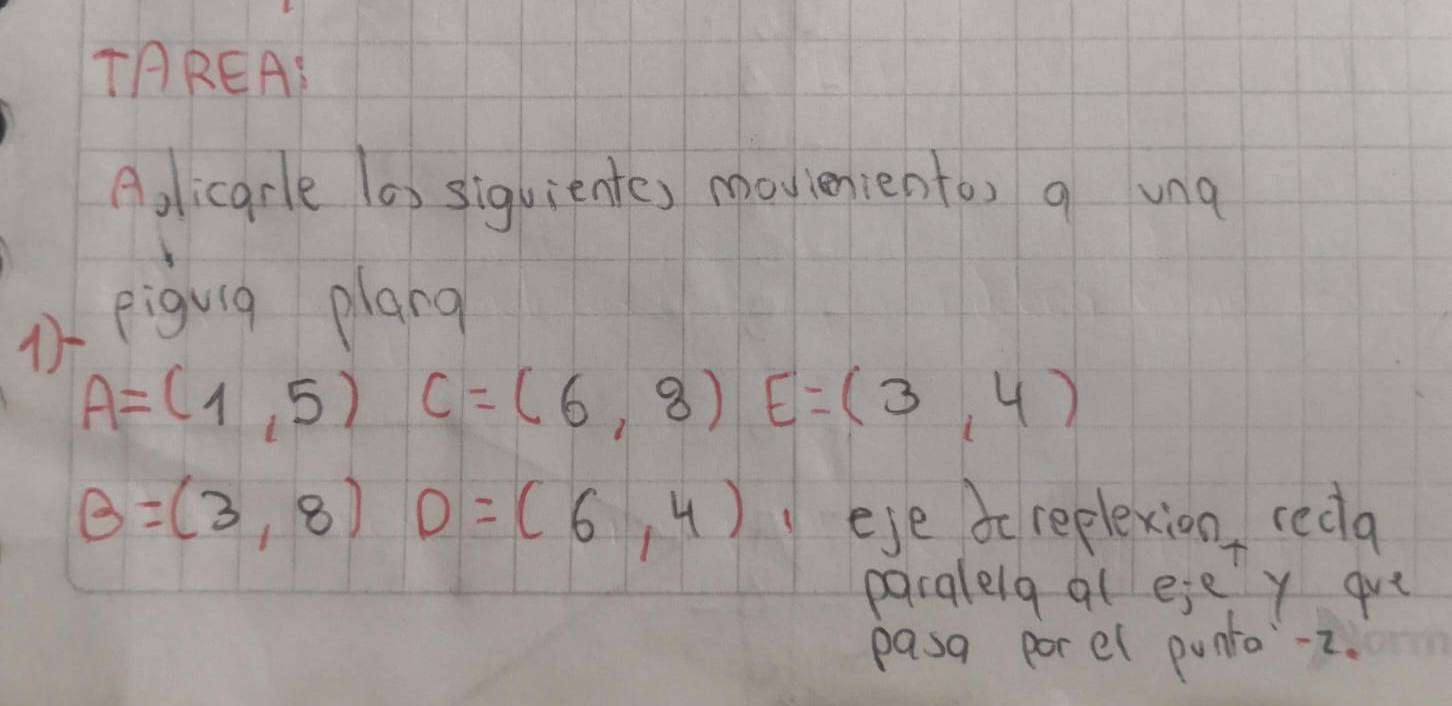 TAREA:
Aplicarle los siguientes movimientos a una
figura plana
1)-
A=(1,5) C=(6,8) E=(3,4)
B=(3,8) D=(6,4), eje de reflexion, recta
paralela al eje y que
pasa por el punto -2.